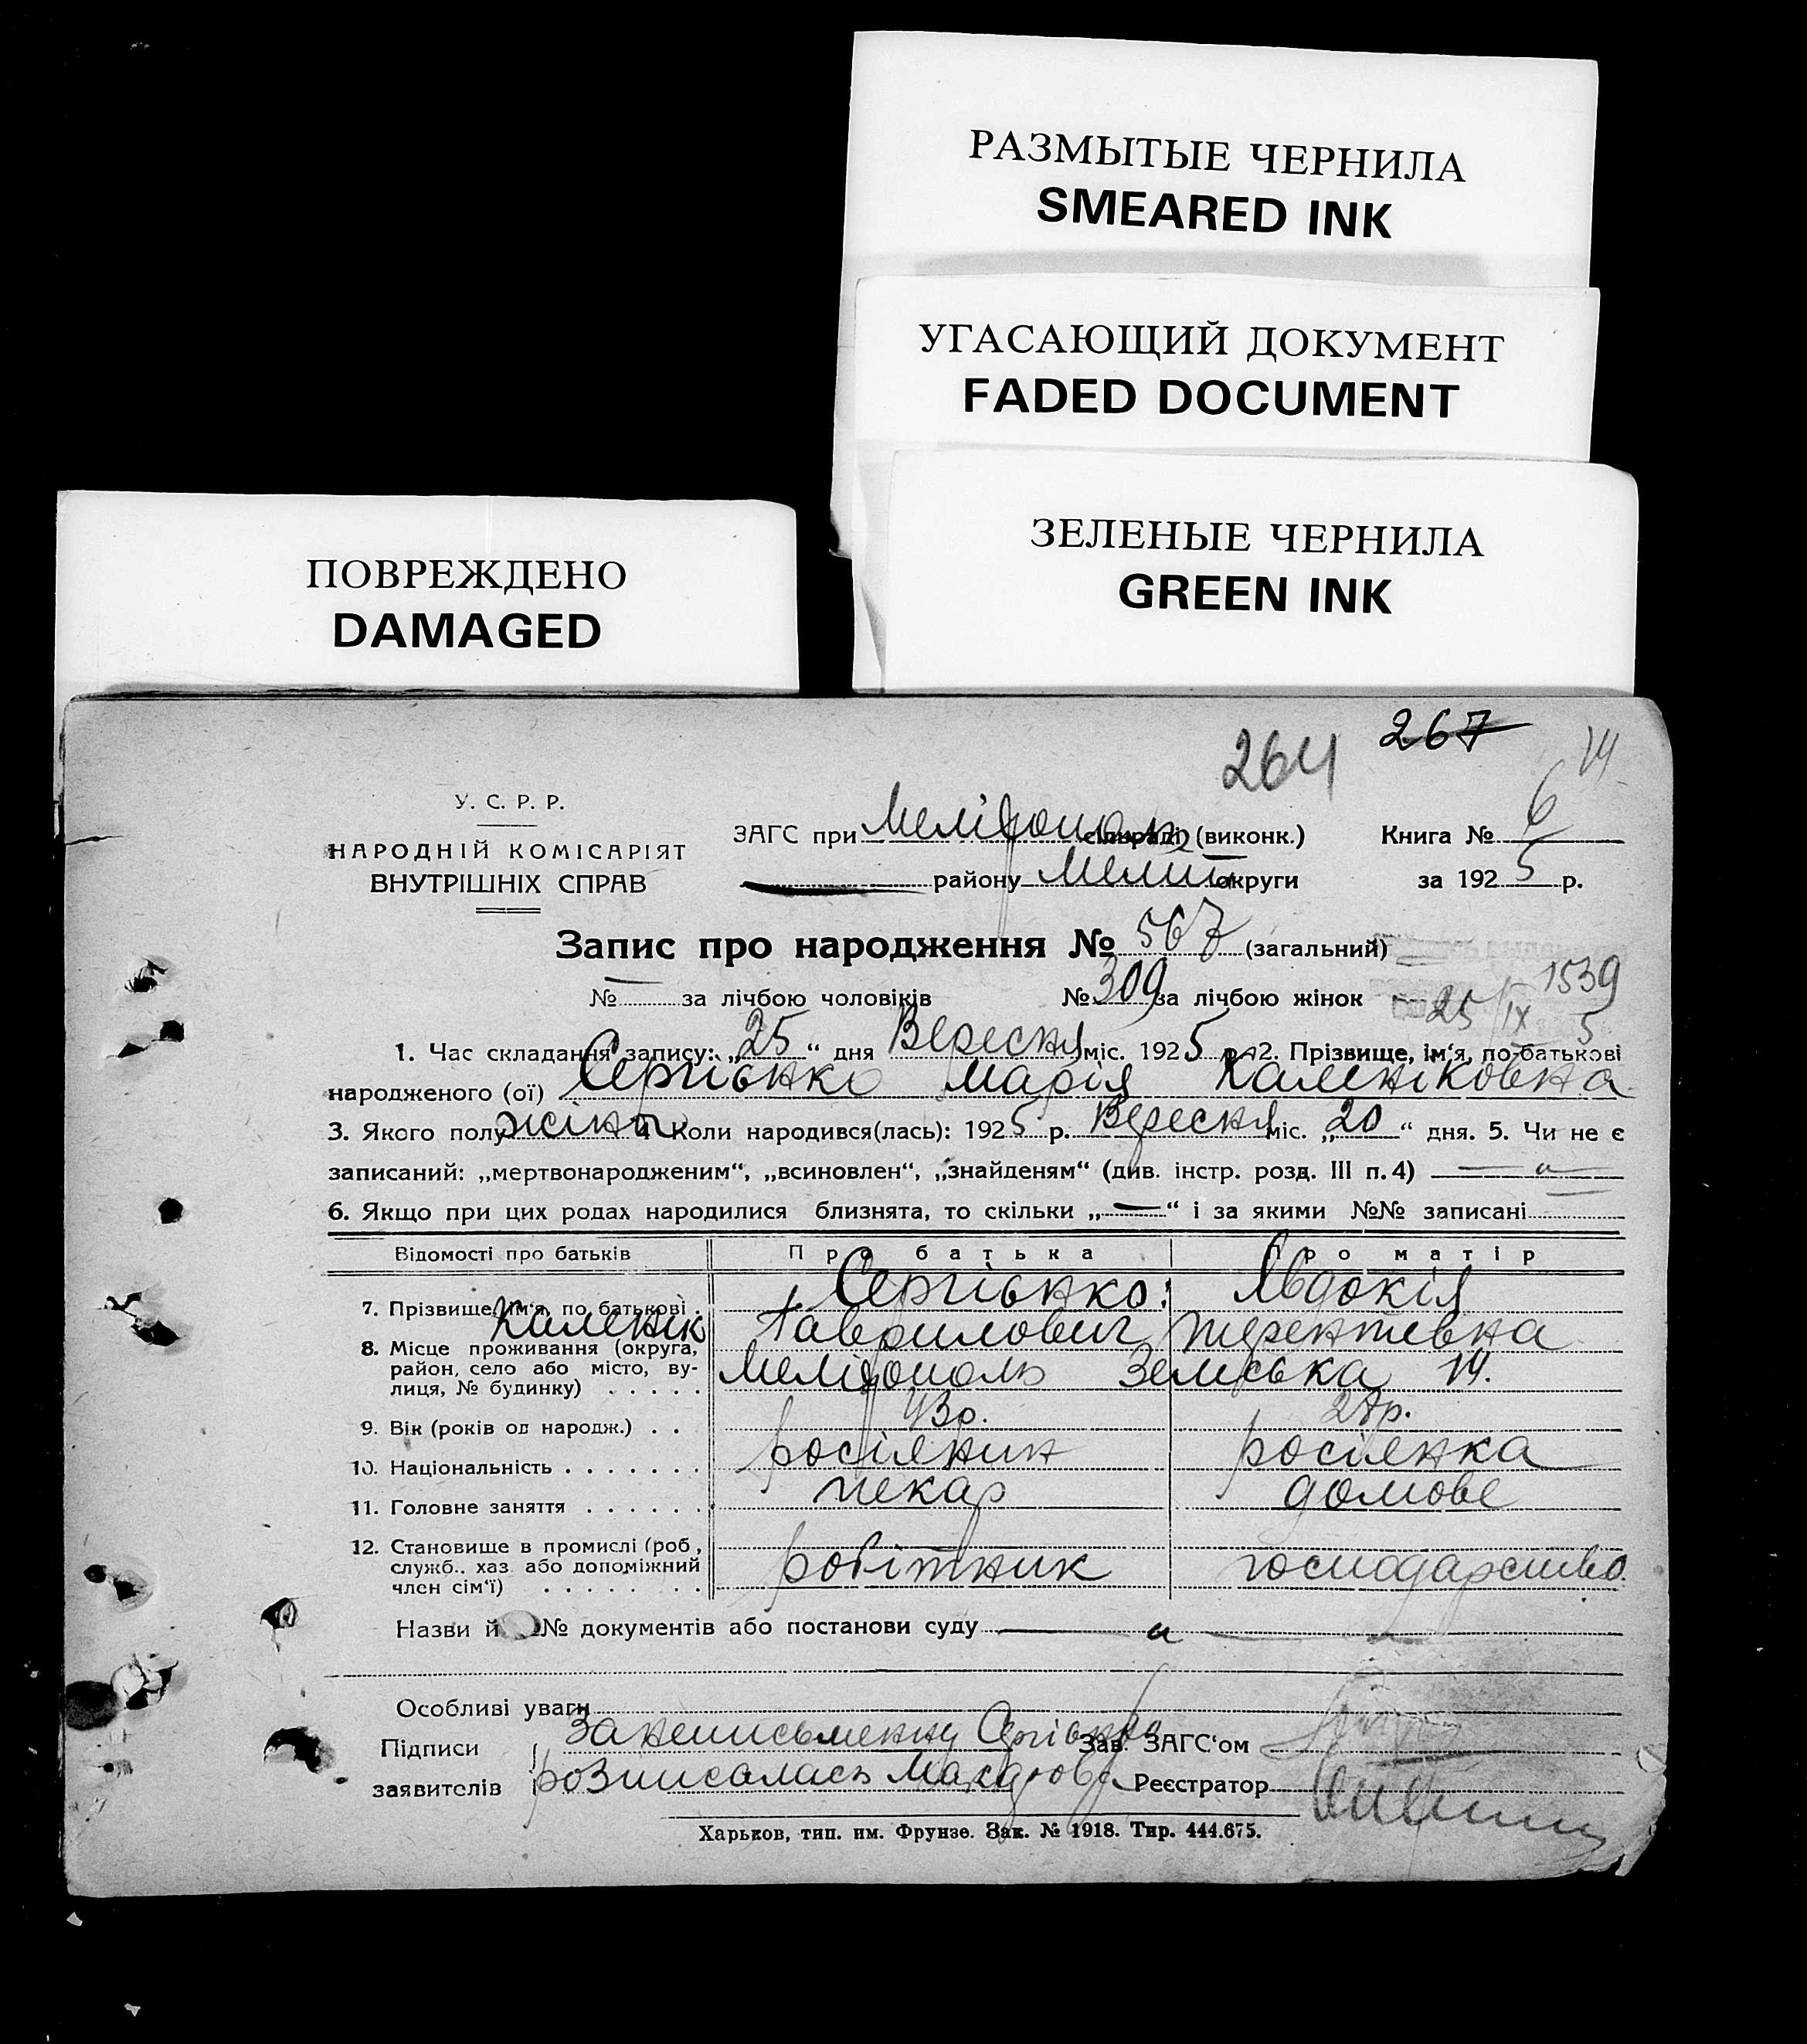 РАЗМЫТЫЕ ЧЕРНИЛА
SMEARED INK
УГАСАЮЩИЙ ДОКУМЕНТ
FADED DOCUMENT
ЗЕЛЕНЫЕ ЧЕРНИЛА
GREEN INK
ПОВРЕЖДЕНО
DAMAGED
267
264 14
У. С. Р. Р.
НАРОДНІЙ КОМІСАРІЯТ
ВНУТРІШНІХ СПРАВ
ЗАГС при Мелітополь сільраді (виконк.) Книга № 6
району Меліт округи за 1925 р.
Запис про народження № 567 (загальний)
№ — за лічбою чоловіків № 309 за лічбою жінок
1539
25/IX 5
1. Час складання запису: „25“ дня Вересня міс. 1925 р. 2. Прізвище, ім‘я, по-батькові
народженого (ої) Сергієнко Марія Каленіковна
3. Якого полу жіноч 4. Коли народився(лась): 1925 р. Вересня міс. „20“ дня. 5. Чи не є
записаний: „мертвонародженим“, „всиновлен“, „знайденям“ (див. інстр. розд. III п. 4) — „ —
6. Якщо при цих родах народилися близнята, то скільки „—“ і за якими №№ записані
Відомості про батьків Про батька Про матір
7. Прізвище, ім‘я, по батькові Сергієнко: Явдокія
Каленік Гаврилович Терентевна
8. Місце проживання (округа, район, село або місто, вулиця, № будинку) Мелітополь Земська 14.
9. Вік (років од народж.) 43р. 27р.
10. Національність росіянин росіянка
11. Головне заняття пекар домове
12. Становище в промислі (роб., служб., хаз. або допоміжний член сім‘ї) робітник господарство.
Назви й №№ документів або постанови суду — „ —
Особливі уваги
Підписи За неписьменну Сергієнко Зав. ЗАГС‘ом
заявителів розписалась Реєстратор
Харьков, тип. им. Фрунзе. Зак. № 1918. Тир. 444.675.